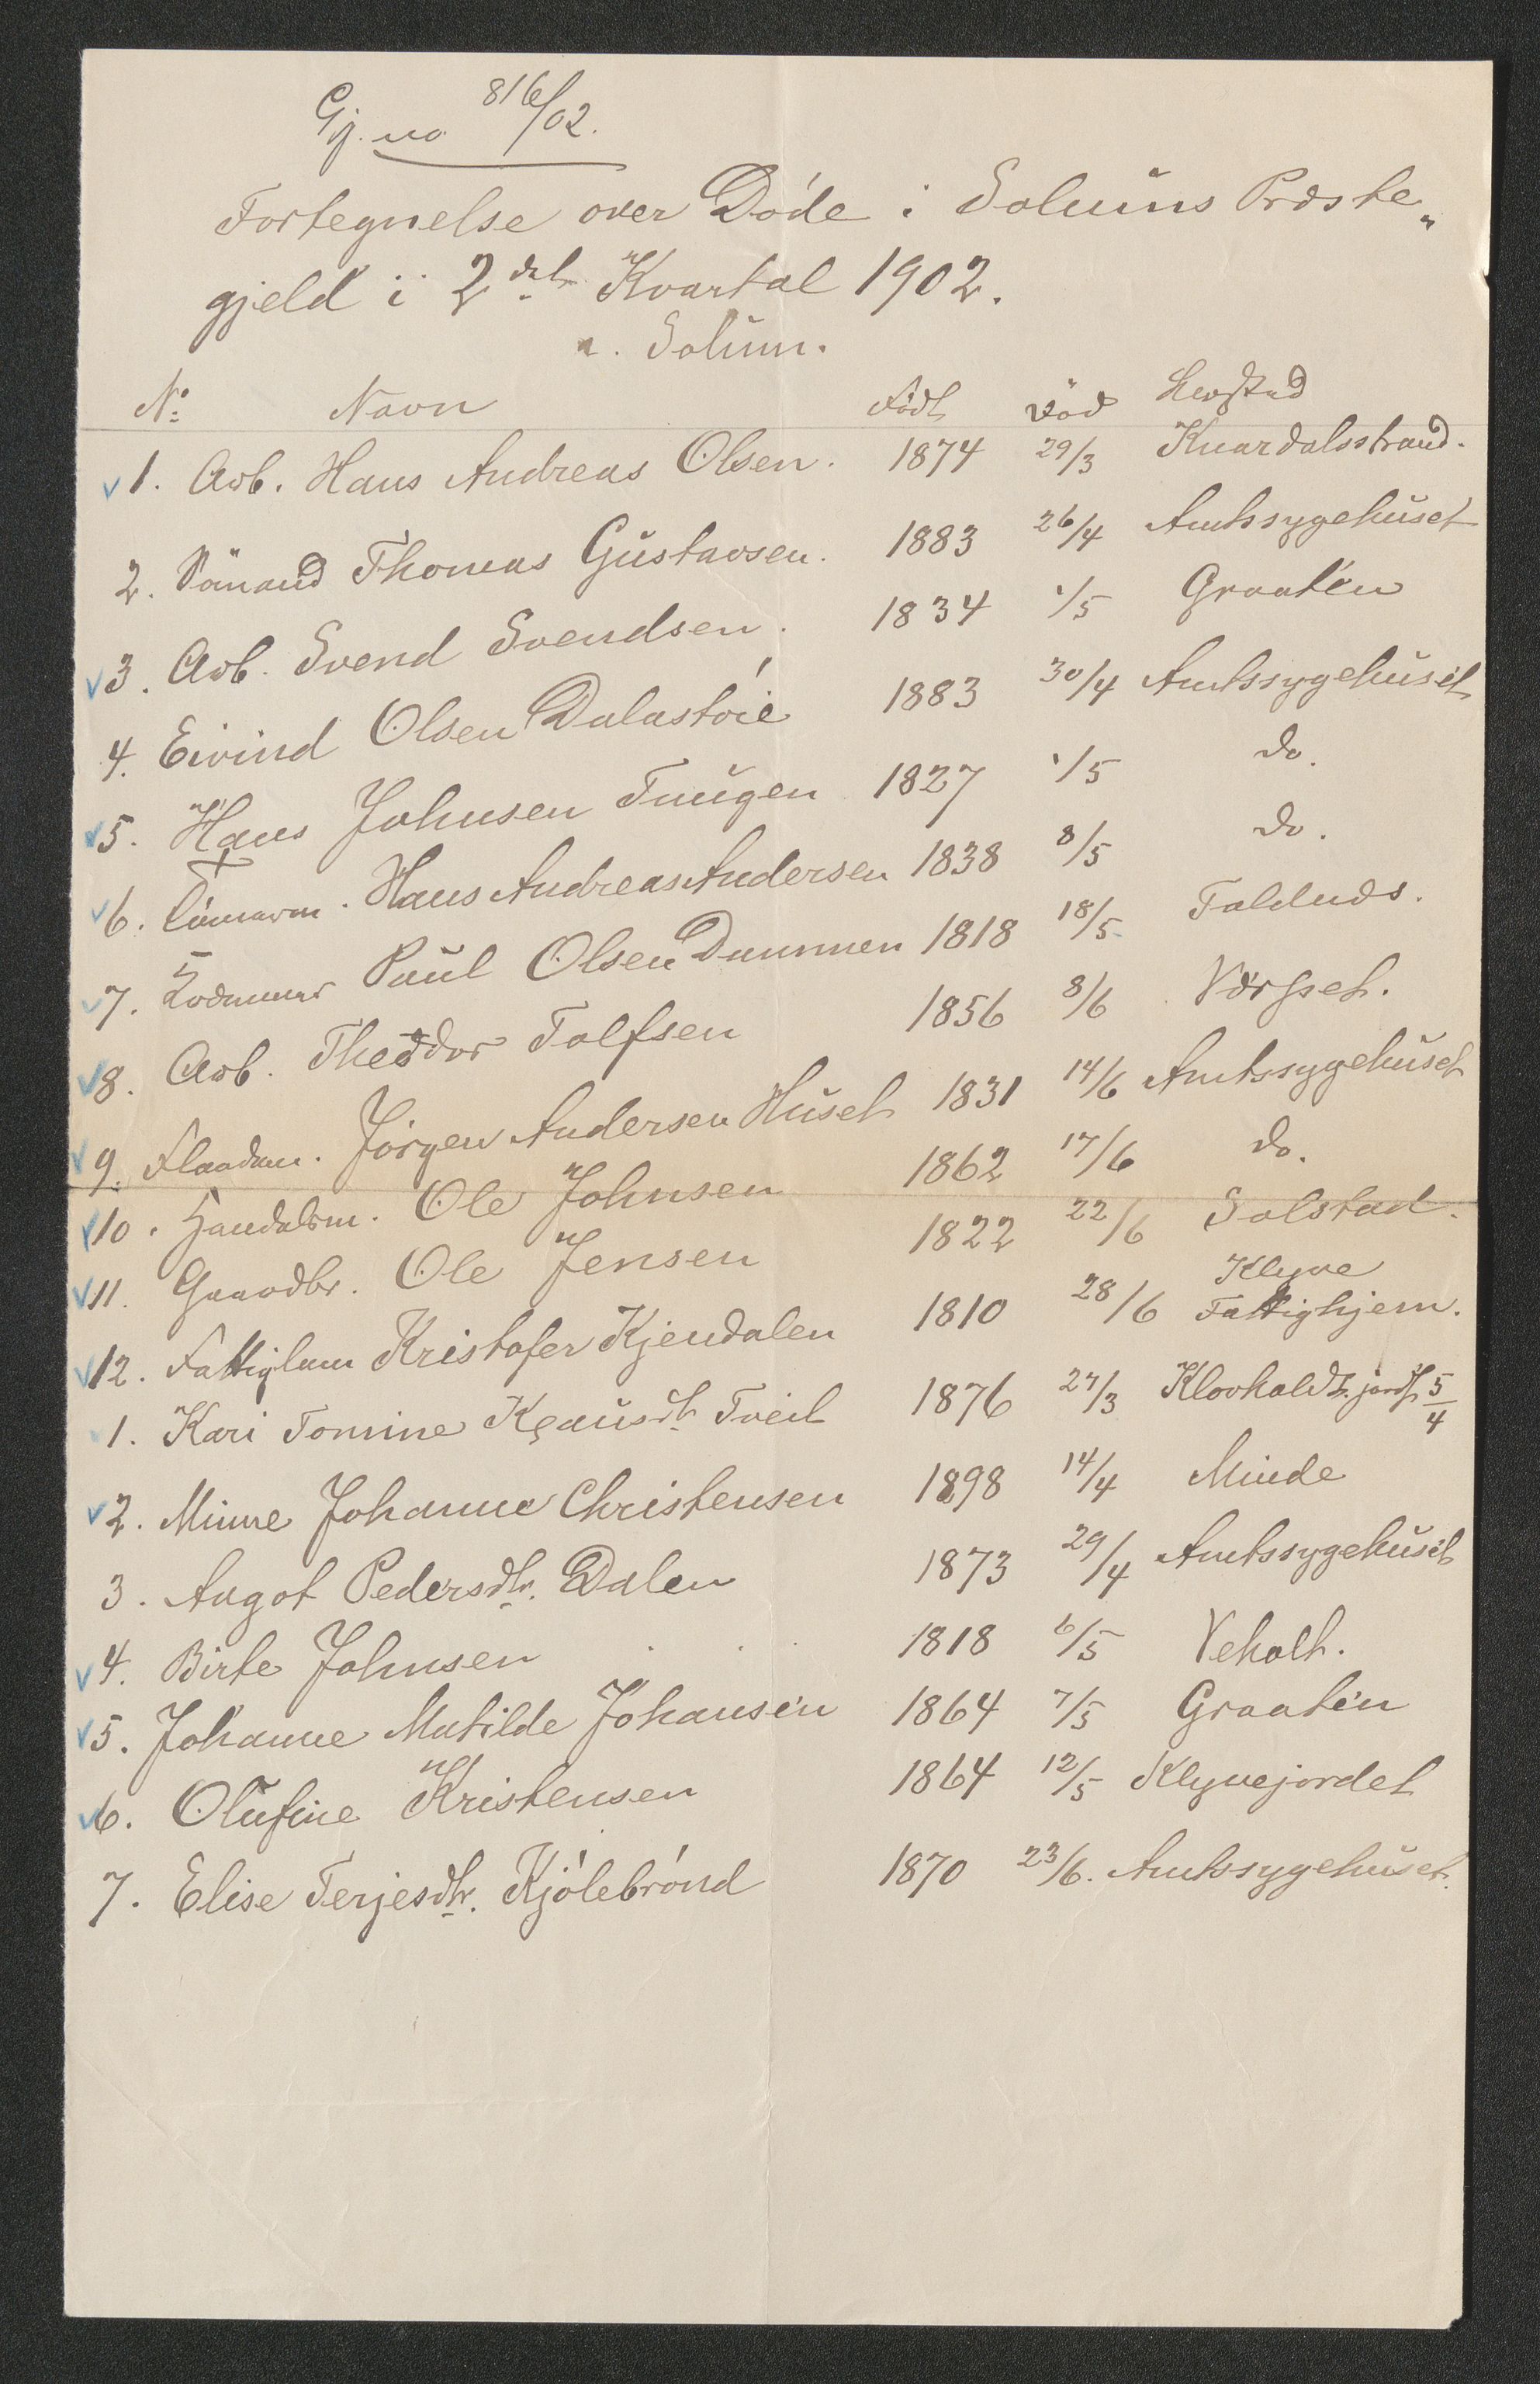 Gj. no 816/02.
Fortegnelse over Døde i Solums Præste„
gjeld i 2det Kvartal 1902.
a. Solum.
No Navn Født Død Levsted
1. Arb. Hans Andreas Olsen. 1874 29/3 Knardalsstrand.
2. Sömand Thomas Gustavsen. 1883 26/4 Amtssygehuset
3. Arb. Svend Svendsen. 1834 1/5 Graaten
4. Eivind Olsen Dalastöie 1883 30/4 Amtssygehuset
5. Hans Johnsen Tuugen 1827 1/5 do.
6. Tömerm. Hans Andreas Andersen 1838 8/5 do.
7. Lodmm Paul Olsen Dammen 1818 18/5 Foldnds.
8. Arb. Theodor Tolfsen 1856 8/6 Værsset.
9. Flaadm. Jörgen Andersen Huset 1831 14/6 Amtssygehuset
10. Handelsm. Ole Johnsen 1862 17/6 do.
11. Gaardbr. Ole Jensen 1822 22/6 Solstad.
12. Fattiglem Kristofer Kjendalen 1810 28/6 Klyve Fattighjem.
1. Kari Tomine Klausdtr Tveit 1876 27/3 Klovholdt. jordf 5/4
2. Minne Johanne Christensen 1898 14/4 Minde
3. Angot Pedersdtr. Dalen 1873 29/4 Amtssygehuset
4. Birte Johnsen 1818 6/5 Veholt.
5. Johanne Matilde Johansen 1864 7/5 Graaten
6. Olufine Kristensen 1864 12/5 Klyvejordet
7. Elise Terjesdtr. Kjölebrönd 1870 23/6. Amtssygehuset.